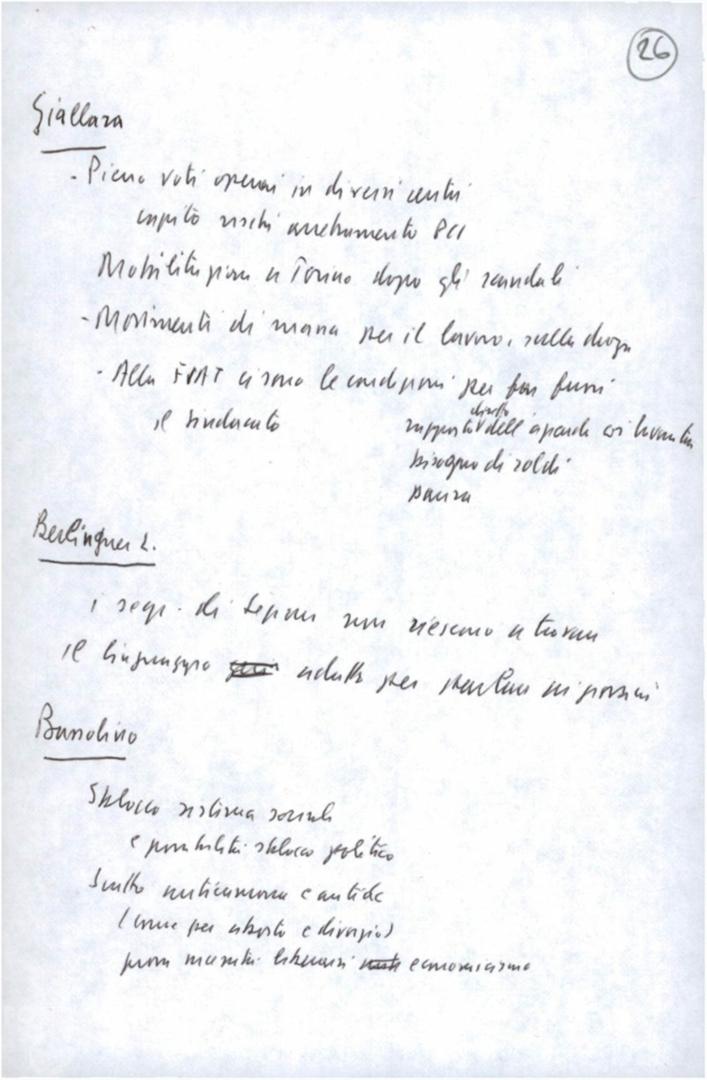 26
Giallara
- Pieno voti operai in diversi centri
capito rischi arretramento PCI
Mobilitazione a Torino dopo gli scandali
- Movimenti di massa per il lavoro, sulla droga
- Alla FIAT ci sono le condizioni per far fuori
il sindacato
diretto
rapporto dell'azienda coi lavoratori
bisogno di soldi
paura
Berlinguer L.
i segr. di sezione non riescono a trovare
il linguaggio adatto per parlare ai giovani
Bassolino
Sblocco sistema sociale
e possibilità sblocco politico
anticamorra e antidc
(come per aborto e divorzio)
economicismo